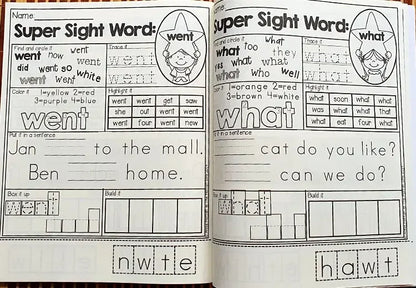 Name:
Super Sight Word:
went
Find and circle it
went now went
went
did went so white
went went
Trace it
went
went
Color it 1=yellow 2=red
3=purple 4=blue
went
Highlight it
went went get saw
she out went went
went four went new
Put it in a sentence
Jan to the mall.
Ben home.
Box it up
went
Build it
n w t e
Name:
Super Sight Word:
what
Find and circle it
what too what they
yes what what
what who well
Trace it
what
what
Color it 1=orange 2=red
3=brown 4=white
what
Highlight it
what soon what what
was what what that
what eat four what
Put it in a sentence
cat do you like?
can we do?
Box it up
what
Build it
h a w t